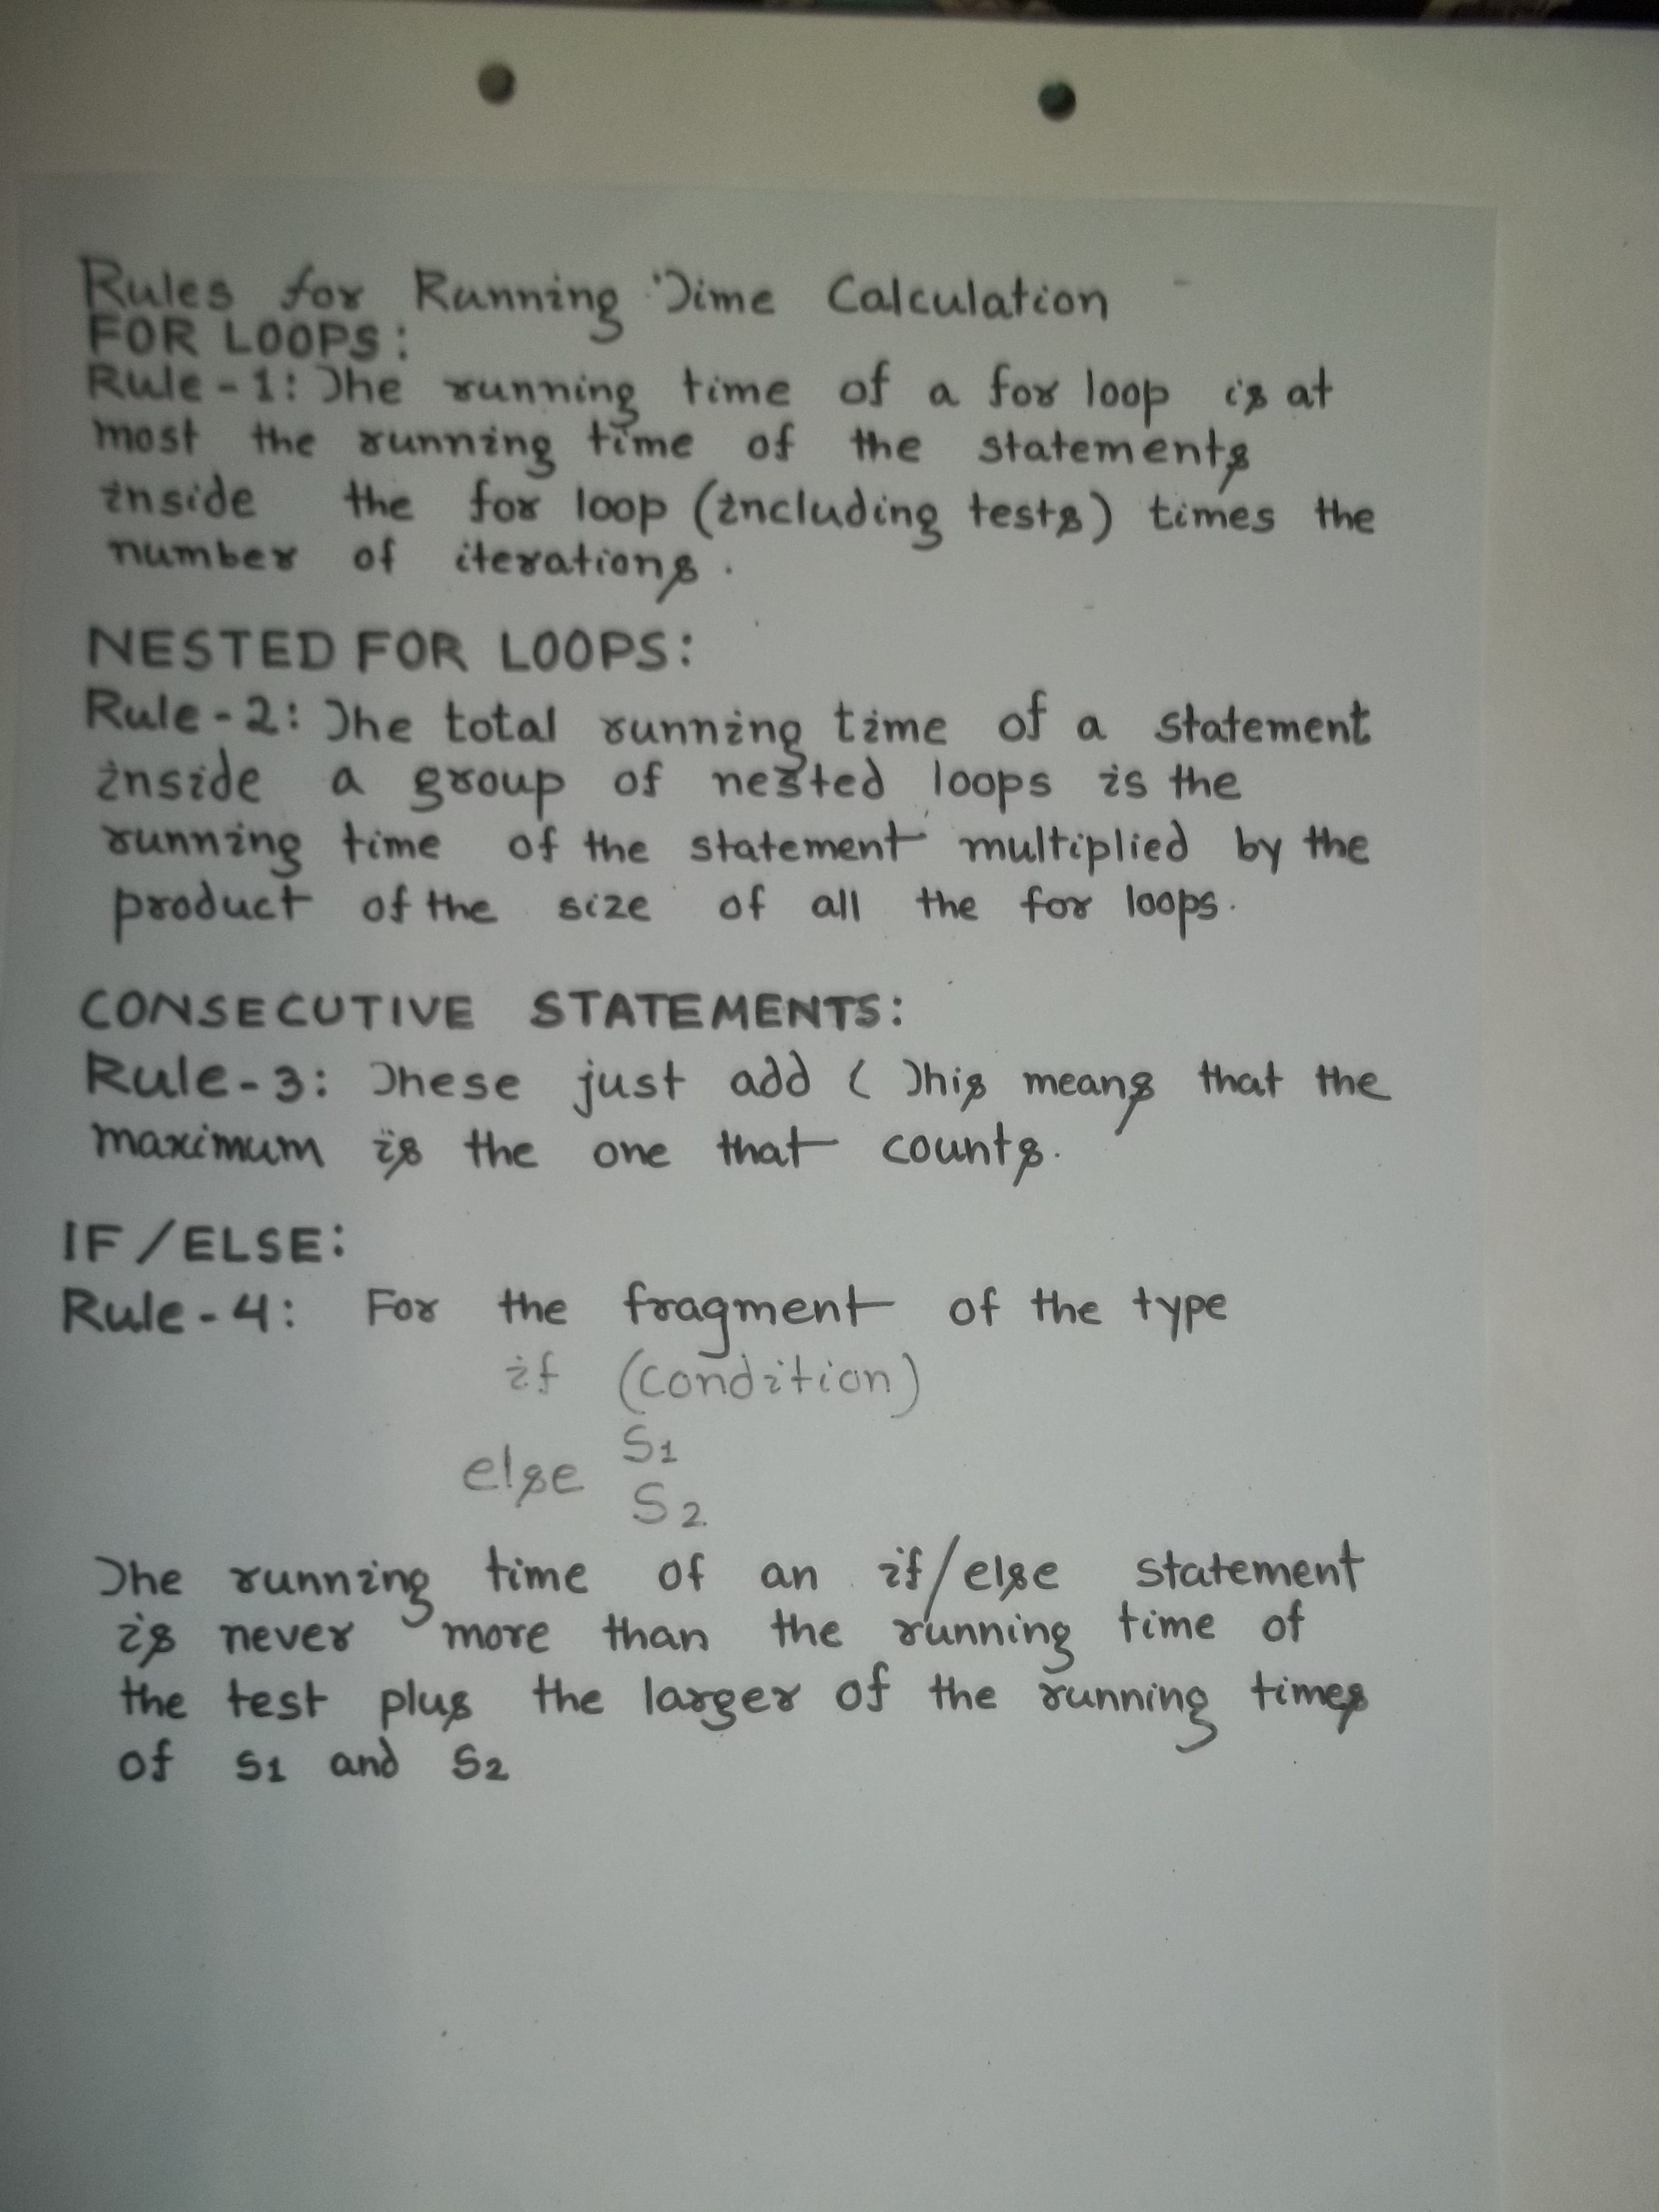 Rules for Running Time Calculation
FOR LOOPS:
Rule-1: The running time of a for loop is at
most the running time of the statements
inside the for loop (including tests) times the
number of iterations.
NESTED FOR LOOPS:
Rule-2: The total running time of a statement
inside a group of nested loops is the
running time of the statement multiplied by the
product of the size of all the for loops.
CONSECUTIVE STATEMENTS:
Rule-3: These just add ( This means that the
maximum is the one that counts.
IF/ELSE:
Rule-4: For the fragment of the type
if (condition)
S1
else
S2
The running time of an if/else statement
is never more than the running time of
the test plus the larger of the running times
of S1 and S2